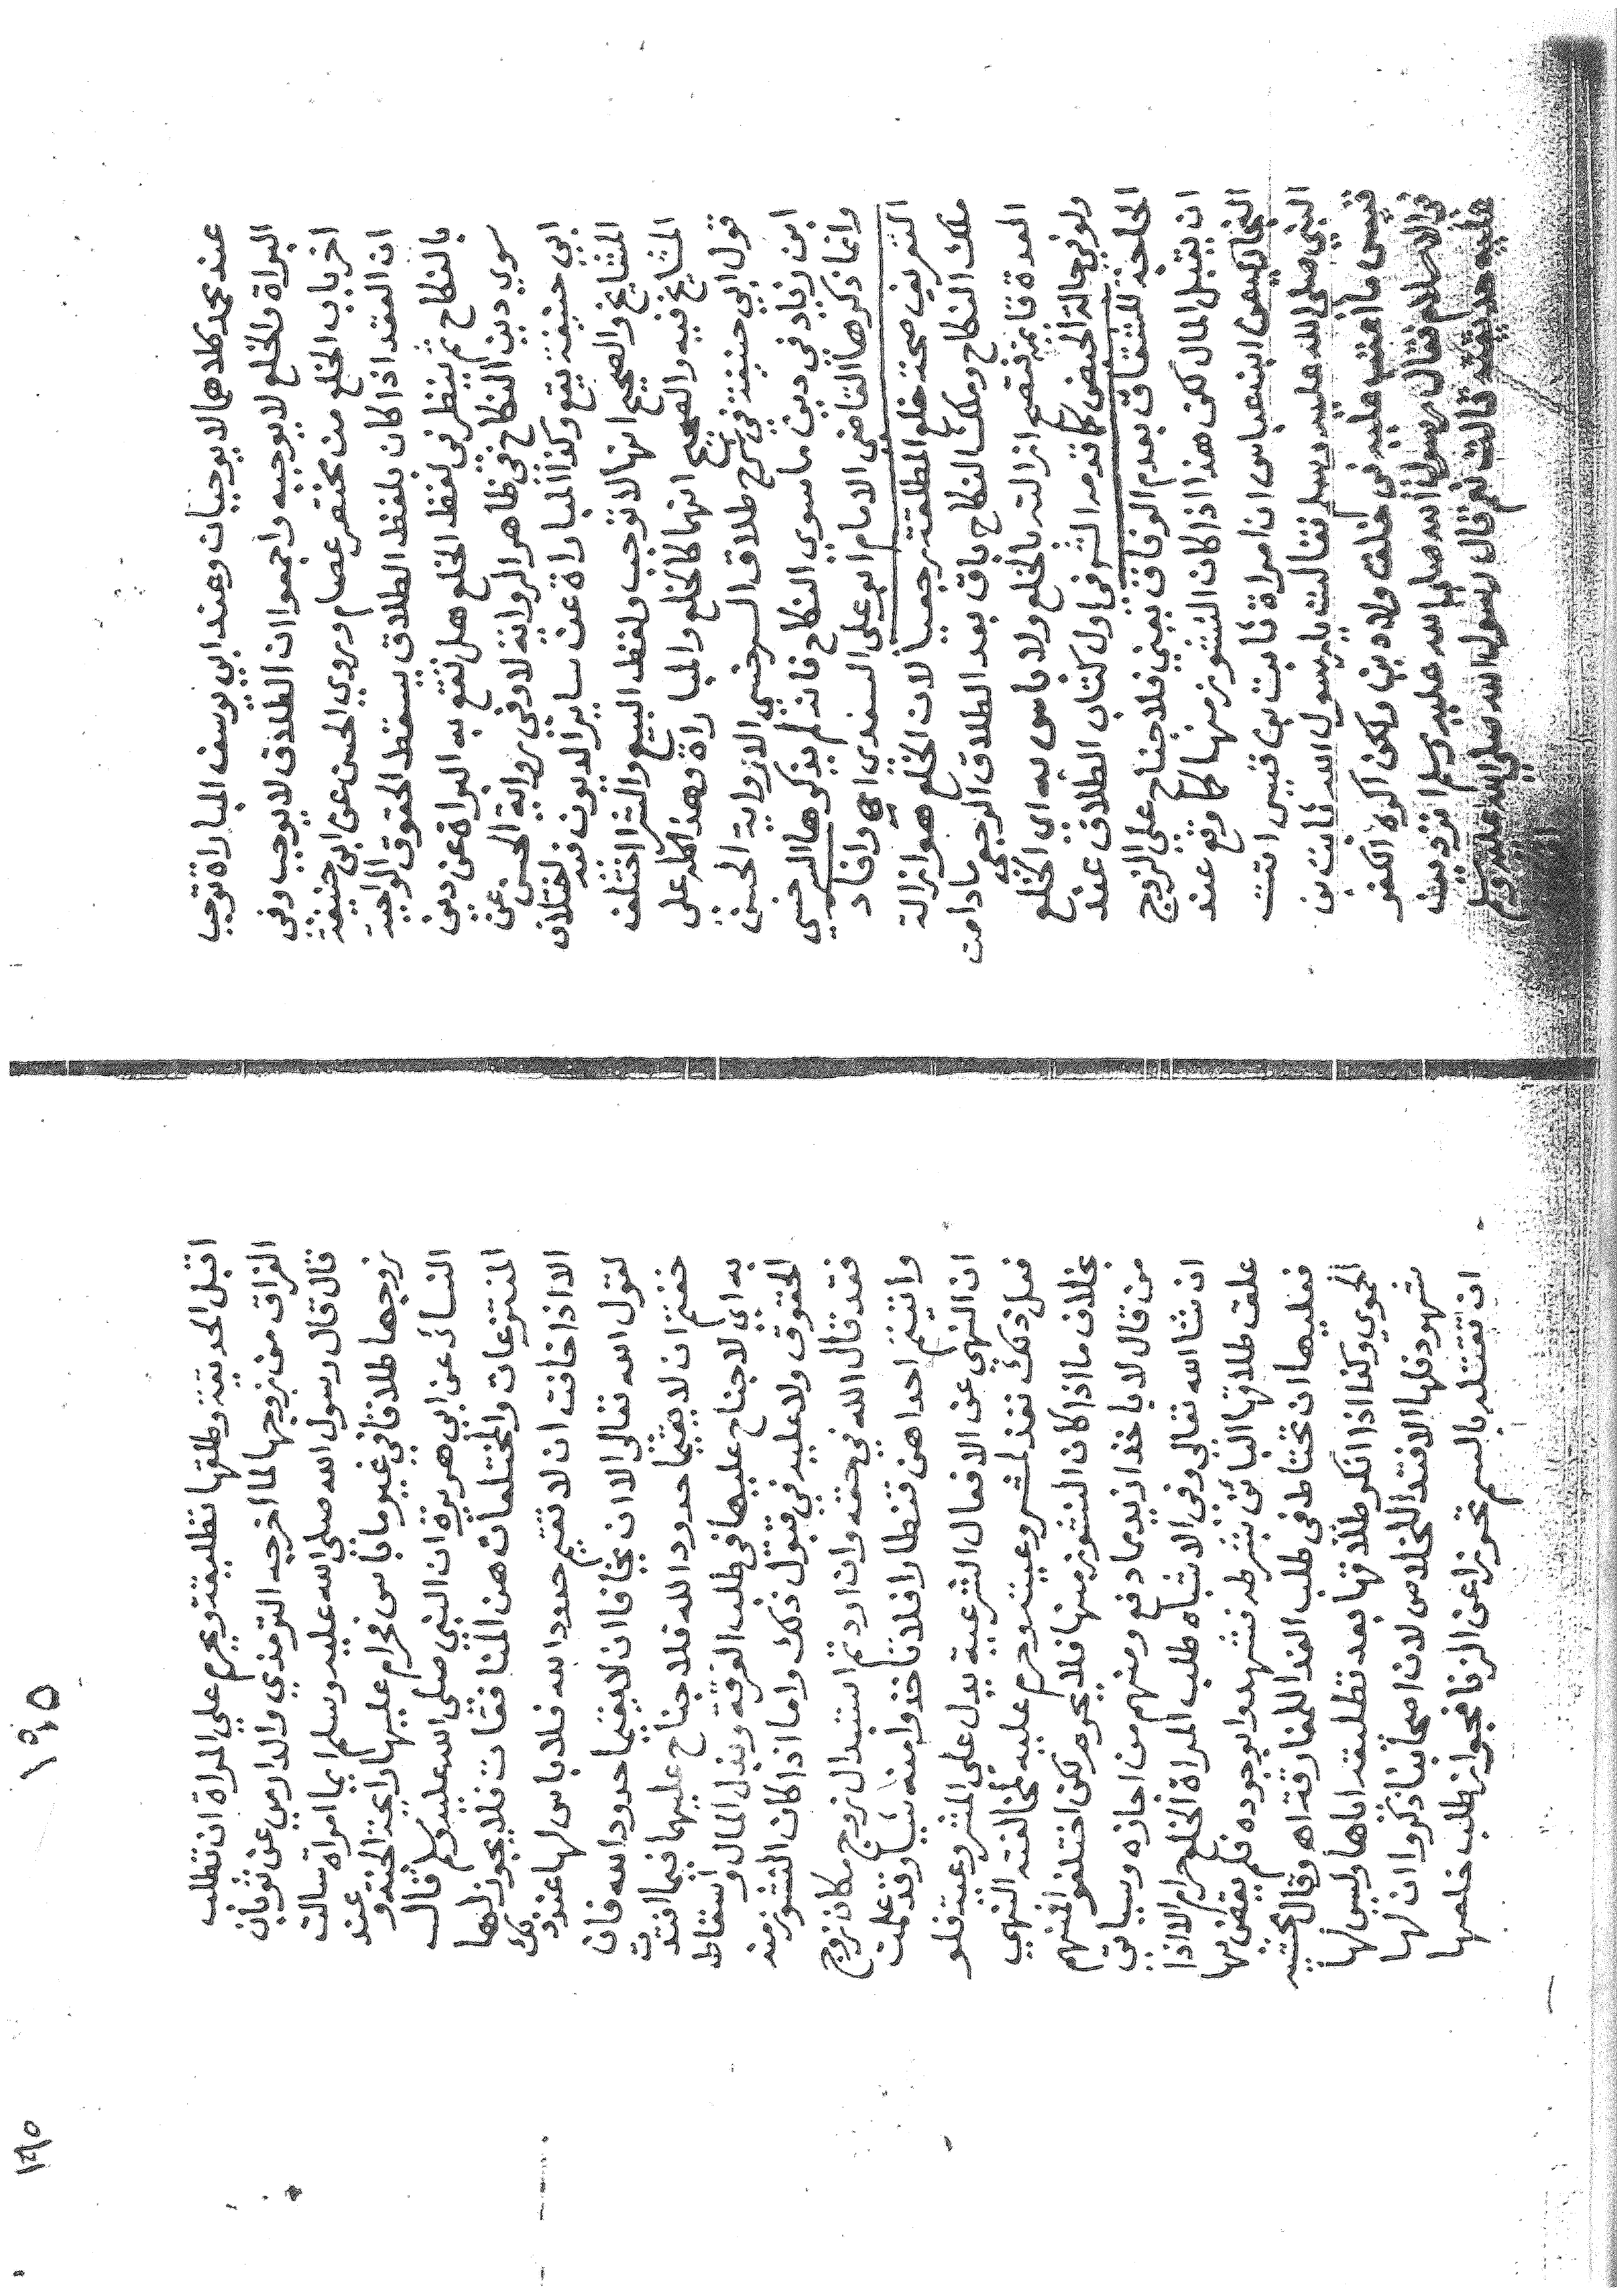 عند محمد كلاهما لا يوجبان وعند ابي يوسف المباراة توجب
البراة والخلع لا يوجبه واجمعوا ان الطلاق لا يوجب وفي
اخر باب الخلع من مختصر عصام وروي الحسن عن ابي حنيفة
ان العقد اذا كان بلفظ الطلاق يسقط الحقوق الواجبة
بالنكاح ثم ينظر في لفظ الخلع هل تقع به البراة عن دين
سوي دين النكاح في ظاهر الرواية لا وفي رواية الحسن عن
ابي حنيفة يقع وكذا المباراة عن ساير الديون فيه اختلاف
المشايخ والصحيح انها لا توجب ولفظ البيع والشرا اختلف
المشايخ فيه والصحيح انهما كالخلع والمباراة وهذا كله على
قول ابي حنيفة في شرح طلاق السرخسي الا رواية الحسن
ابن زياد في دين ما سوي النكاح فانه لم يذكرها السرخسي
وانما ذكرها القاضي الامام ابو علي السغدي اه وافاد
التعريف صحة خلع المطلقة رجعيا لان الخلع هو ازالة
ملك النكاح وملك النكاح باق بعد الطلاق الرجعي ما دامت
العدة قائمة فتصح ازالته بالخلع ولا باس به اي الخلع
ولو في حالة الحيض كما قدمه الش في اول كتاب الطلاق عند
الحاجة للشقاق بعدم الوفاق يعني فلا جناح علي الزوج
ان يقبل المال لكن هذا اذا كان النشوز منها كما وقع عند
البخاري عن ابن عباس ان امراة ثابت بن قيس اتت
النبي صلى الله عليه وسلم فقالت يا رسول الله ثابت بن
قيس ما اعتب عليه في خلق ولا دين ولكن اكره الكفر
في الاسلام فقال رسول الله صلى الله عليه وسلم اتردين
عليه حديقته قالت نعم قال رسول الله صلى الله عليه وسلم
١٩٥
١٩٥
اقبل الحديقة وطلقها تطليقة ويحرم علي المراة ان تطلب
الفراق من زوجها لما اخرجه الترمذي والدارمي عن ثوبان
قال قال رسول الله صلى الله عليه وسلم ايما امراة سالت
زوجها طلاقا في غير ما باس فحرام عليها رايحة الجنة وعند
النسائ عن ابي هريرة ان النبي صلى الله عليه وسلم قال
المنتزعات والمختلعات هن المنافقات فلا يجوز لها
الا اذا خافت ان لا تقيم حدود الله فلا باس لها عند ذلك
لقول الله تعالى الا ان يخافا ان لا يقيما حدود الله فان
خفتم ان لا يقيما حدود الله فلا جناح عليهما فيما افتدت
به اي لا جناح عليها في طلب الفرقة وبذل المال او اسقاط
الحقوق ولا عليه في قبول ذلك واما اذا كان النشوز منه
فقد قال الله في حقه وان اردتم استبدال زوج مكان زوج
واتيتم احداهن قنطارا فلا تاخذوا منه شيا وقد علمت
ان النهي عن الافعال الشرعية يدل على المشروعية فلو
فعل ذلك نفذ لمشروعيته وحرم عليه لمخالفته النهي
بخلاف ما اذا كان النشوز منها فلا يحرم لكن اختلفوا فمنهم
من قال لا ياخذ ازيد مما دفع ومنهم من اجازه وسياتي
ان شا الله تعالي وفي الاشباه طلب المراة الخلع حرام الا اذا
علق طلاقها البائن بشرط فشهدوا بوجوده فلم يقض بها
فعليها ان تحتاط في طلب الفدا للمفارقة اه وقال محشيه
الحموي وكذا اذا انكر طلاقها بعد تطليقه اياها وليس لها
شهود فلها الافتدا للخلاص لان اصحابنا ذكروا ان لها
ان تقتله بالسم تحرزا عن الزنا فجواز طلب خلعها